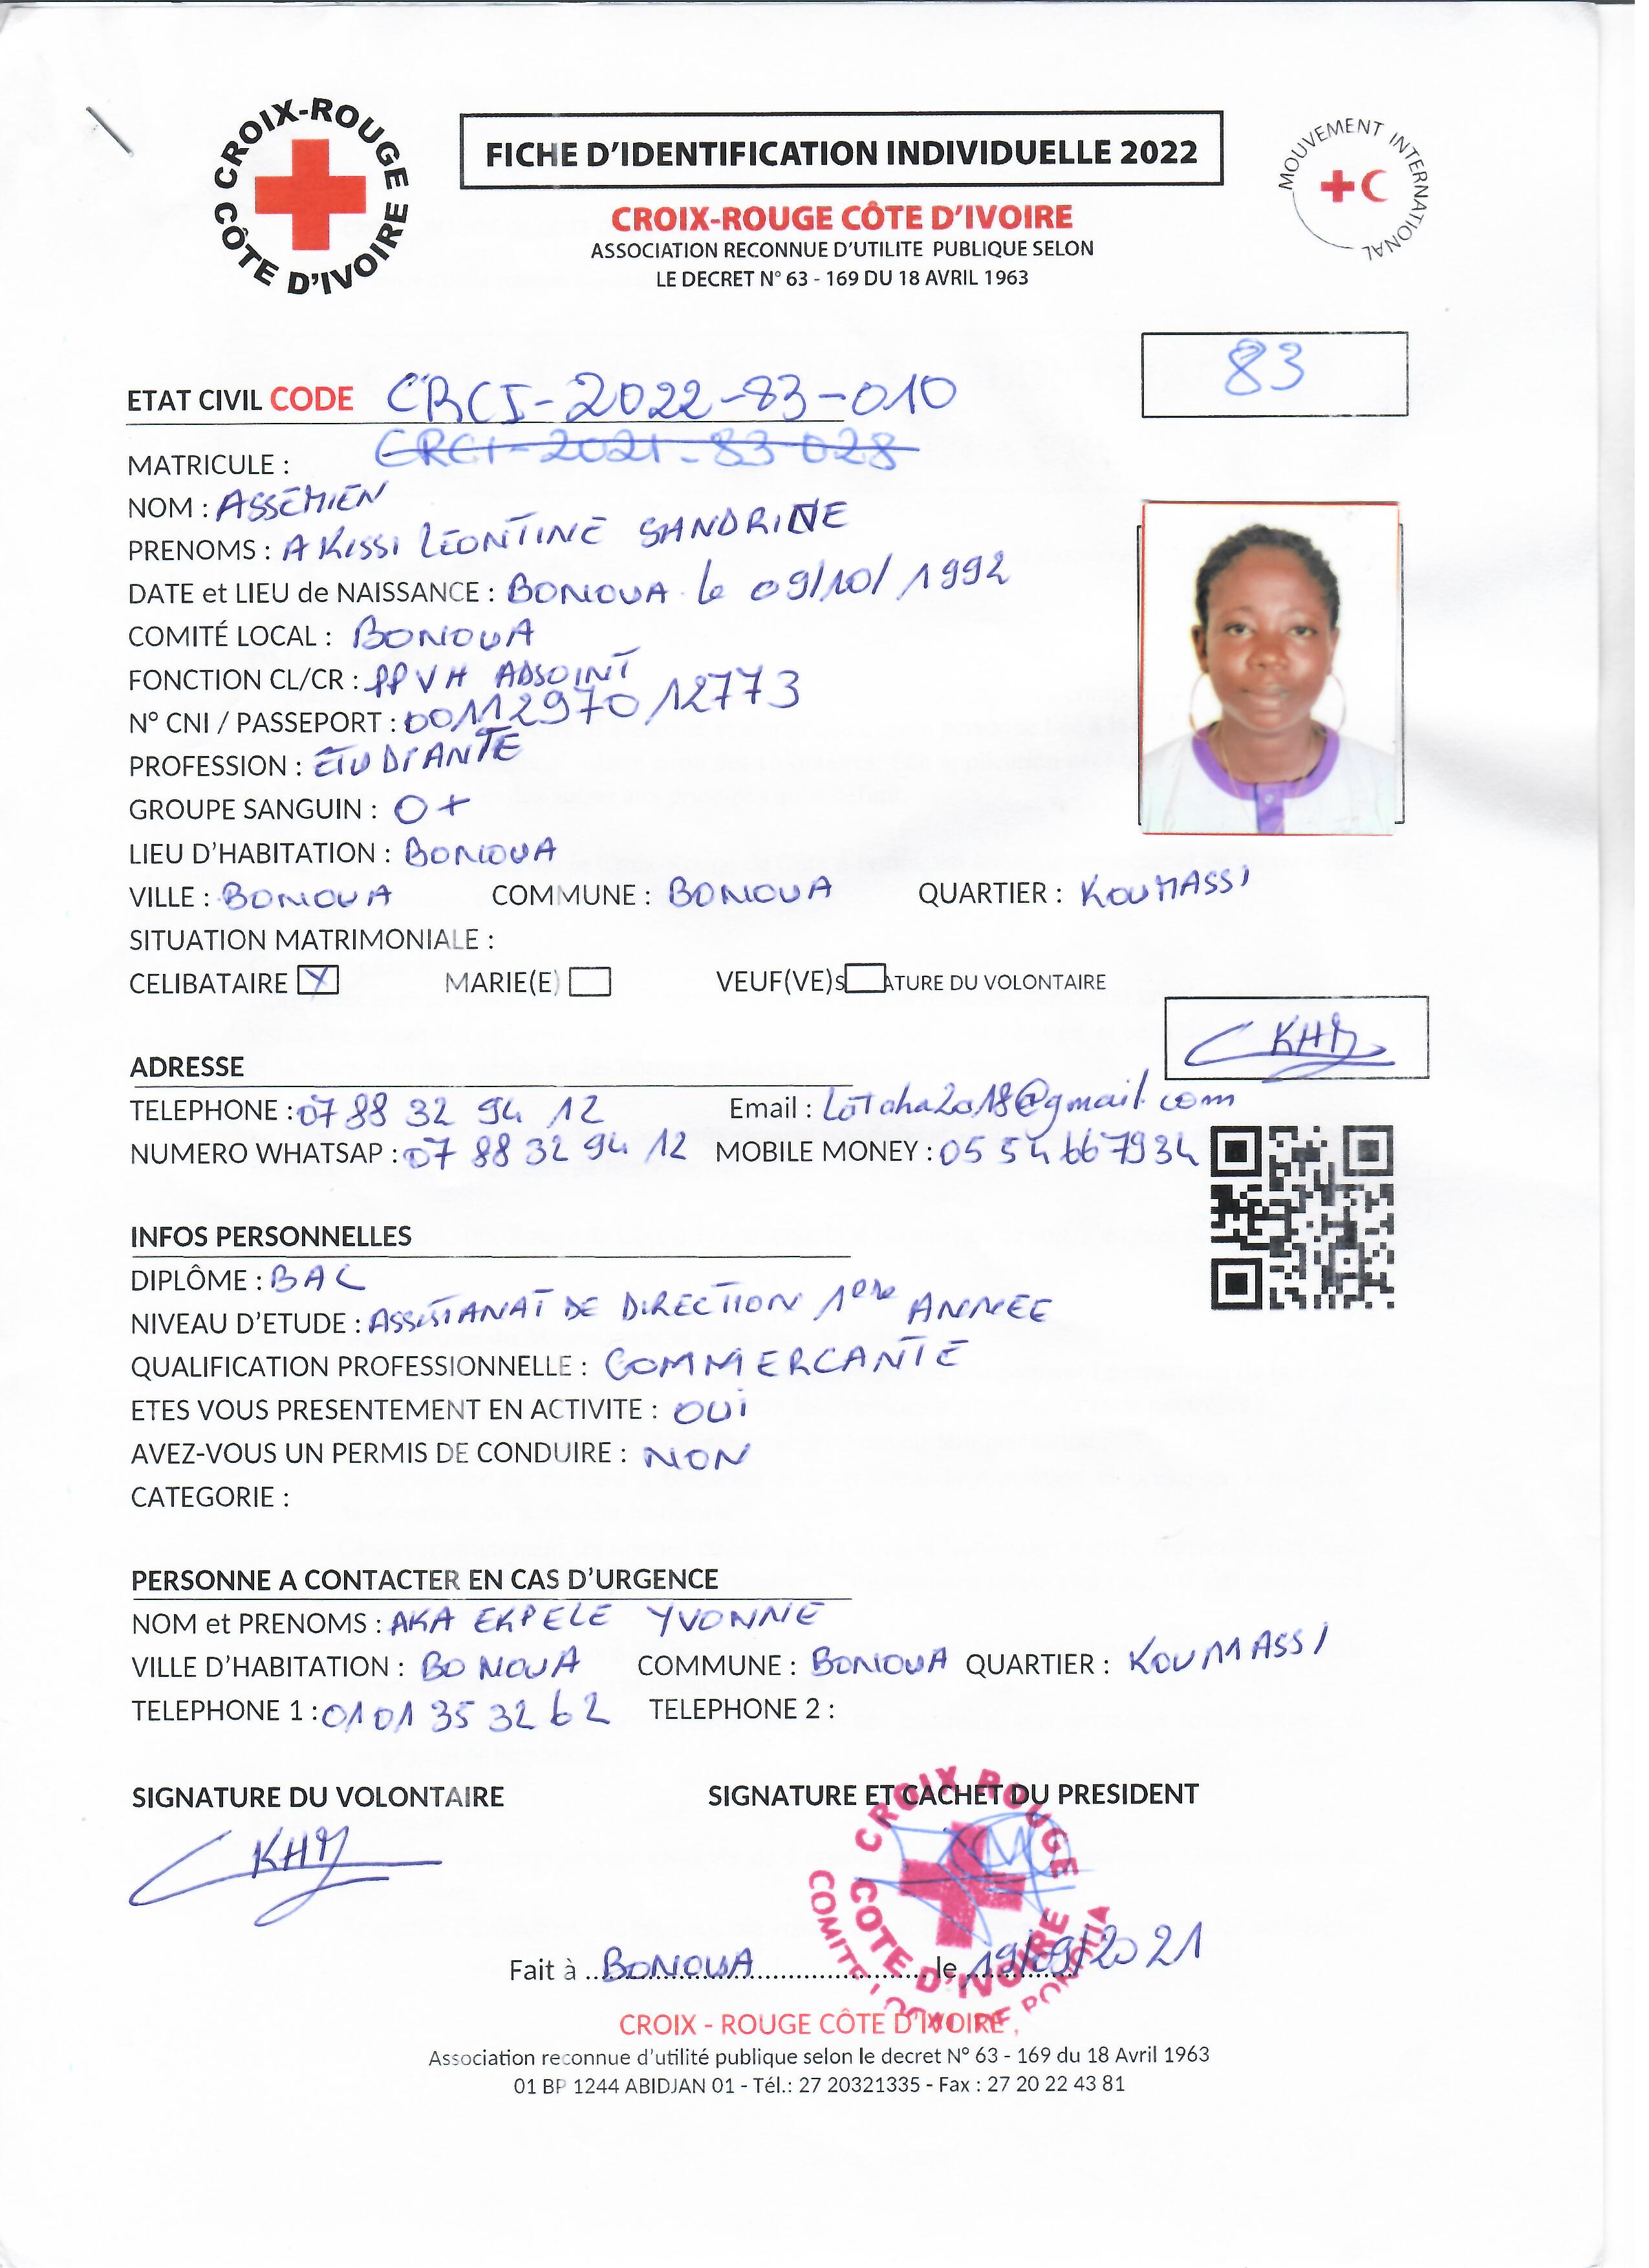 CROIX-ROUGE CÔTE D'IVOIRE
FICHE D'IDENTIFICATION INDIVIDUELLE 2022
MOUVEMENT INTERNATIONAL
CROIX-ROUGE CÔTE D'IVOIRE
ASSOCIATION RECONNUE D'UTILITE PUBLIQUE SELON
LE DECRET N° 63 - 169 DU 18 AVRIL 1963
83
ETAT CIVIL CODE CRCI-2022-83-010
CRCI-2021-83-028
MATRICULE :
NOM : ASSEMIEN
PRENOMS : AKISSI LEONTINE SANDRINE
DATE et LIEU de NAISSANCE : BONOUA le 09/10/1992
COMITÉ LOCAL : BONOUA
FONCTION CL/CR : PPVH ADJOINT
N° CNI / PASSEPORT : 0011297012773
PROFESSION : ETUDIANTE
GROUPE SANGUIN : O+
LIEU D'HABITATION : BONOUA
VILLE : BONOUA COMMUNE : BONOUA QUARTIER : KOUMASSI
SITUATION MATRIMONIALE :
CELIBATAIRE X MARIE(E) VEUF(VE) S ATURE DU VOLONTAIRE
KHM
ADRESSE
TELEPHONE : 07 88 32 94 12 Email : Lotaha2018@gmail.com
NUMERO WHATSAP : 07 88 32 94 12 MOBILE MONEY : 05 54 66 79 34
INFOS PERSONNELLES
DIPLÔME : BAC
NIVEAU D'ETUDE : ASSISTANAT DE DIRECTION 1ere ANNEE
QUALIFICATION PROFESSIONNELLE : COMMERCANTE
ETES VOUS PRESENTEMENT EN ACTIVITE : OUI
AVEZ-VOUS UN PERMIS DE CONDUIRE : NON
CATEGORIE :
PERSONNE A CONTACTER EN CAS D'URGENCE
NOM et PRENOMS : AKA EKPELE YVONNE
VILLE D'HABITATION : BONOUA COMMUNE : BONOUA QUARTIER : KOUMASSI
TELEPHONE 1 : 01 01 35 32 62 TELEPHONE 2 :
SIGNATURE DU VOLONTAIRE SIGNATURE ET CACHET DU PRESIDENT
KHM
CROIX ROUGE COTE D'IVOIRE
COMITE LOCAL DE BONOUA
Fait à BONOUA le 19/09/2021
CROIX - ROUGE CÔTE D'IVOIRE
Association reconnue d'utilité publique selon le decret N° 63 - 169 du 18 Avril 1963
01 BP 1244 ABIDJAN 01 - Tél.: 27 20321335 - Fax : 27 20 22 43 81